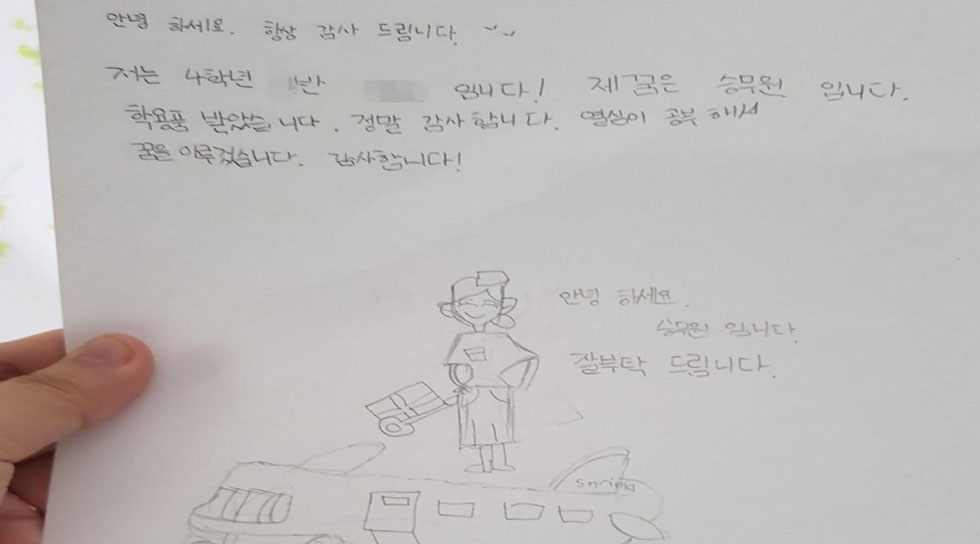 안녕 하세요. 항상 감사 드립니다. ^^
저는 4학년 반 입니다! 제 꿈은 승무원 입니다.
학용품 받았습니다. 정말 감사합니다. 열심이 공부 해서
꿈을 이루겠습니다. 감사합니다!
안녕 하세요.
승무원 입니다.
잘부탁 드립니다.